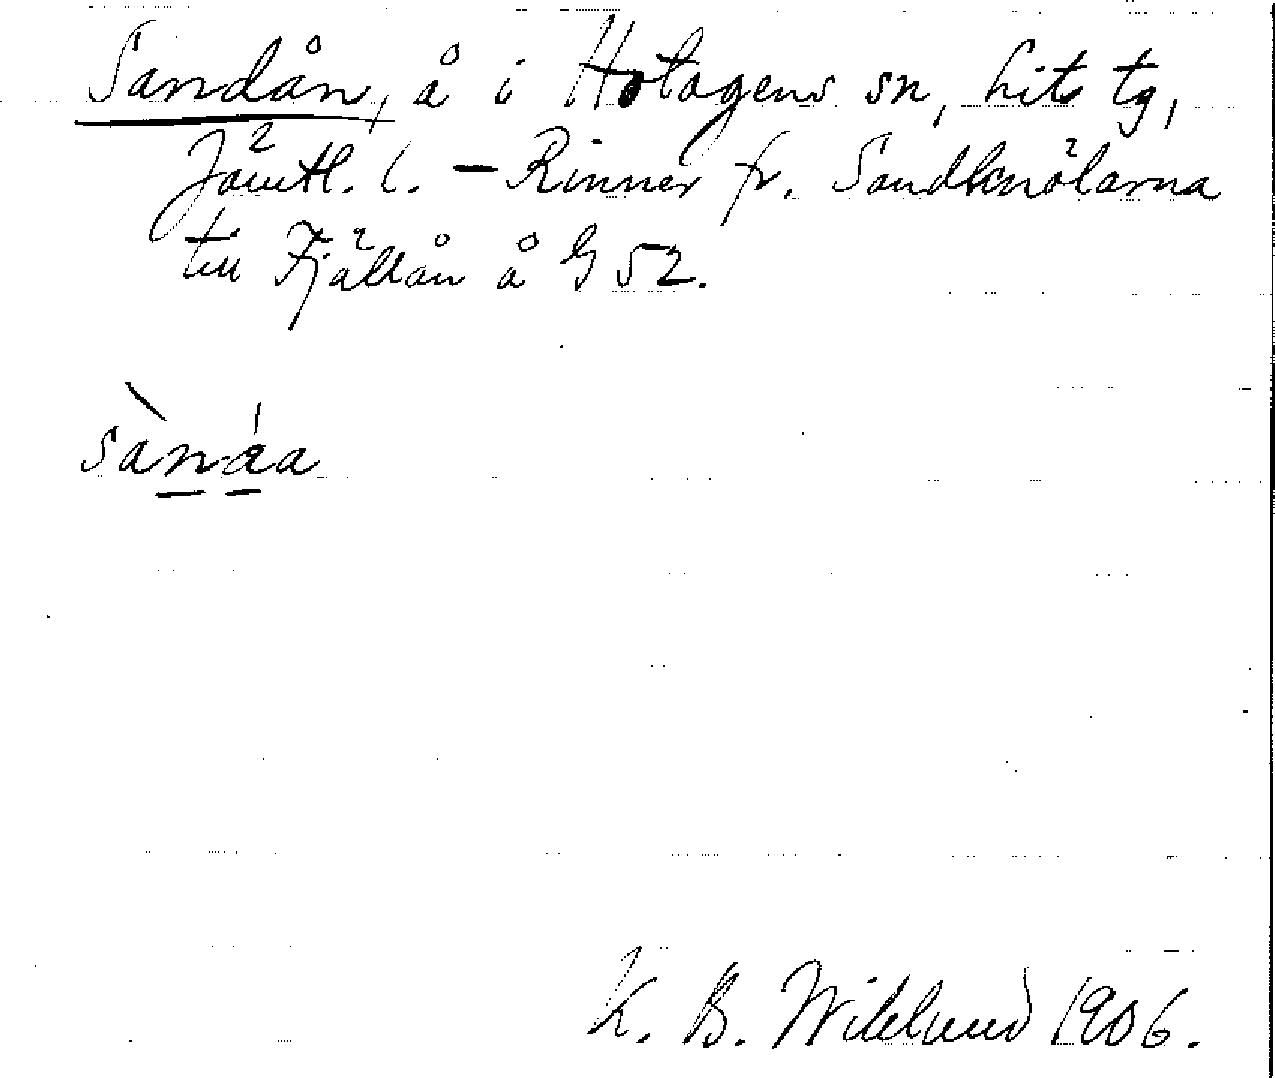 Sandån, å i Hotagens sn, Lits tg,
Jämtl. l. – Rinner fr. Sandknölarna
till Fjällån å G 52.
sànáa
K. B. Wiklund 1906.